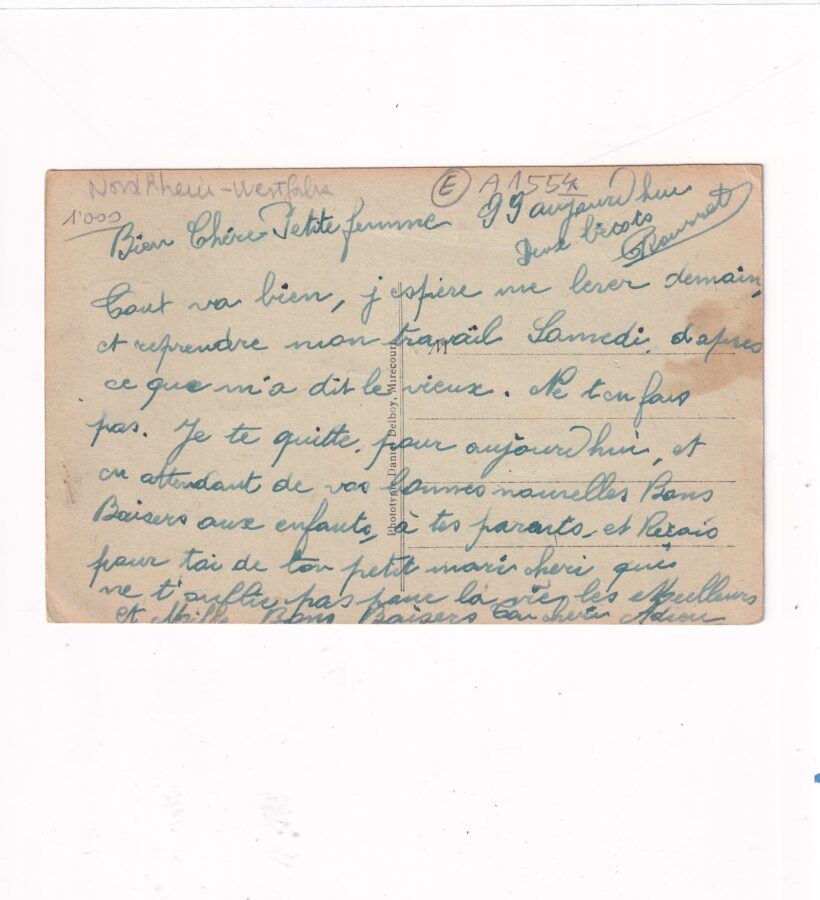 NordRhein-Westfalen
E A 1554
1'000
99 aujourd'hui
Bien Chére Petite femme
Deux bécots
Tout va bien, j'espère me lever demain,
et reprendre mon travail Samedi, d'apres
11
ce que m'a dit le vieux. Ne t'en fais
pas. Je te quitte pour aujourd'hui, et
en attendant de vos bonnes nouvelles Bons
Baisers aux enfants, à tes parents, et Reçois
pour toi de ton petit mari cheri qui
ne t'oublie pas pour la vie, les Meilleurs
et Mille Bons Baisers Ton cheri
Phototypie Daniel Delboy, Mirecourt